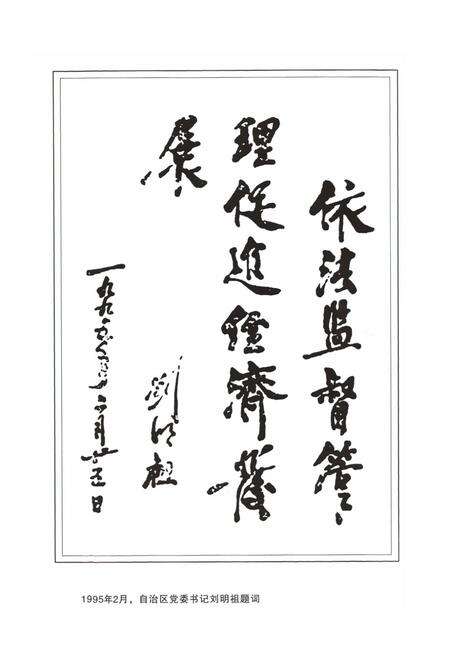 依法监督管
理促進經濟發
展
劉明祖
一九九五年二月廿五日
1995年2月，自治区党委书记刘明祖题词